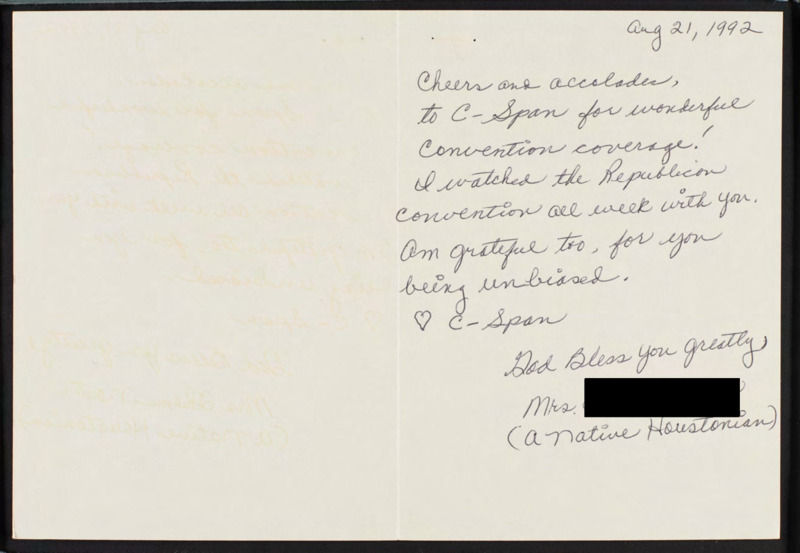 Aug 21, 1992
Cheers and accolades,
to C-Span for wonderful
Convention coverage!
I watched the Republican
Convention all week with you.
Am grateful too, for you
being unbiased.
♡ C-Span
God Bless you greatly,
Mrs.
(a Native Houstonian)